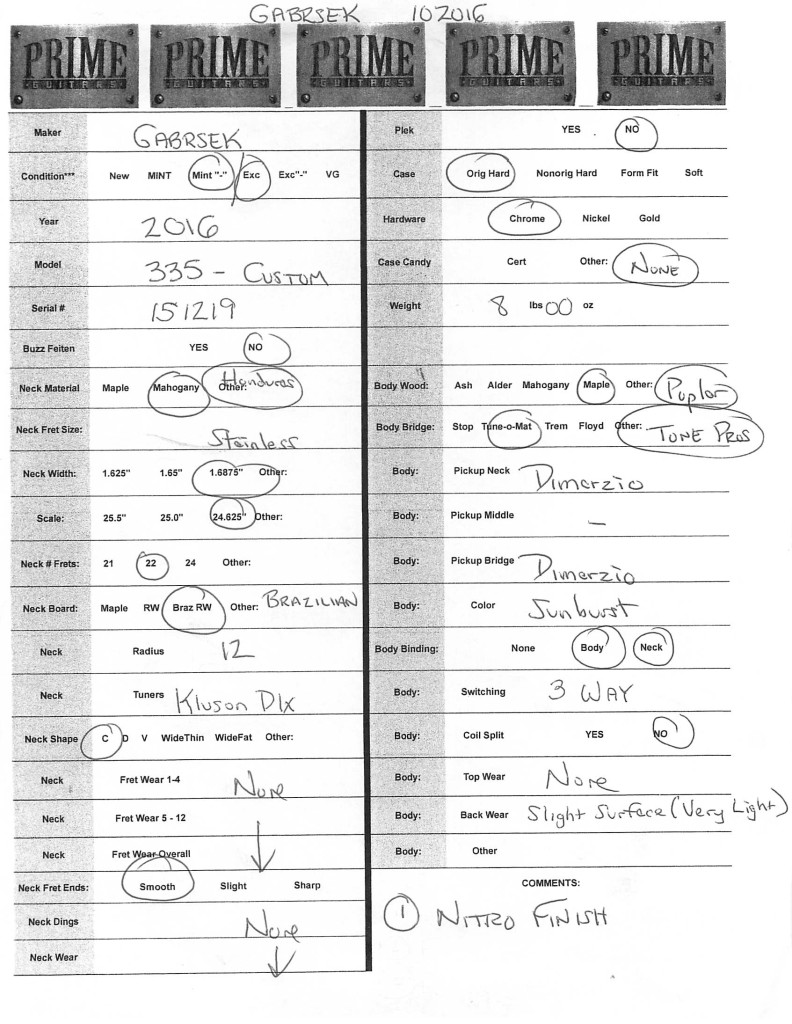 GABRSEK 102016
PRIME GUITARS PRIME GUITARS PRIME GUITARS PRIME GUITARS PRIME GUITARS
Maker GABRSEK
Condition*** New MINT Mint "-" Exc Exc"-" VG
Year 2016
Model 335 - CUSTOM
Serial # 151219
Buzz Feiten YES NO
Neck Material Maple Mahogany Other: Honduras
Neck Fret Size: Stainless
Neck Width: 1.625" 1.65" 1.6875" Other:
Scale: 25.5" 25.0" 24.625" Other:
Neck # Frets: 21 22 24 Other:
Neck Board: Maple RW Braz RW Other: BRAZILIAN
Neck Radius 12
Neck Tuners Kluson Dlx
Neck Shape C D V WideThin WideFat Other:
Neck Fret Wear 1-4 None
Neck Fret Wear 5 - 12
Neck Fret Wear Overall
Neck Fret Ends: Smooth Slight Sharp
Neck Dings None
Neck Wear
Plek YES NO
Case Orig Hard Nonorig Hard Form Fit Soft
Hardware Chrome Nickel Gold
Case Candy Cert Other: NONE
Weight 8 lbs 00 oz
Body Wood: Ash Alder Mahogany Maple Other: Poplar
Body Bridge: Stop Tune-o-Mat Trem Floyd Other: TONE PROS
Body: Pickup Neck Dimerzio
Body: Pickup Middle —
Body: Pickup Bridge Dimerzio
Body: Color Sunburst
Body Binding: None Body Neck
Body: Switching 3 WAY
Body: Coil Split YES NO
Body: Top Wear None
Body: Back Wear Slight Surface (Very Light)
Body: Other
COMMENTS:
1 NITRO FINISH